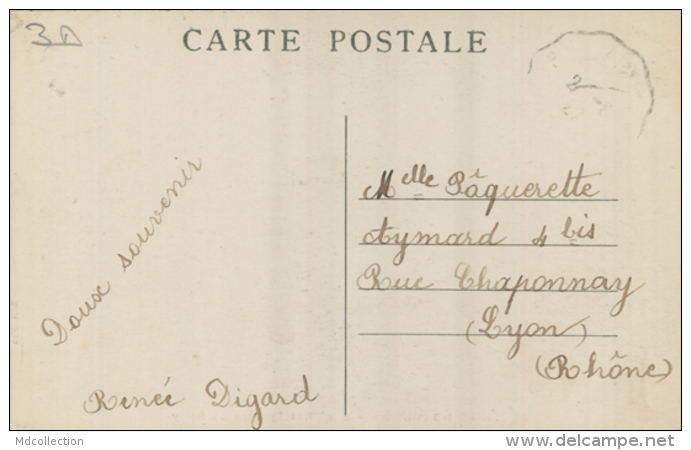 3D
CARTE POSTALE
Doux souvenir
Renée Digard
Melle Pâquerette
Aymard 4 bis
Rue Chaponnay
(Lyon)
(Rhône)
Mdcollection
www.delcampe.net